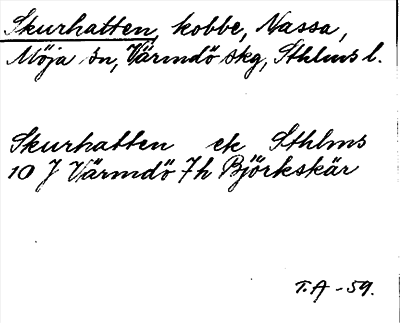 Skurhatten, kobbe, Nassa,
Möja sn, Värmdö skg, Sthlms l.
Skurhatten ek Sthlms
10 J Värmdö 7h Björkskär
T.A -59.